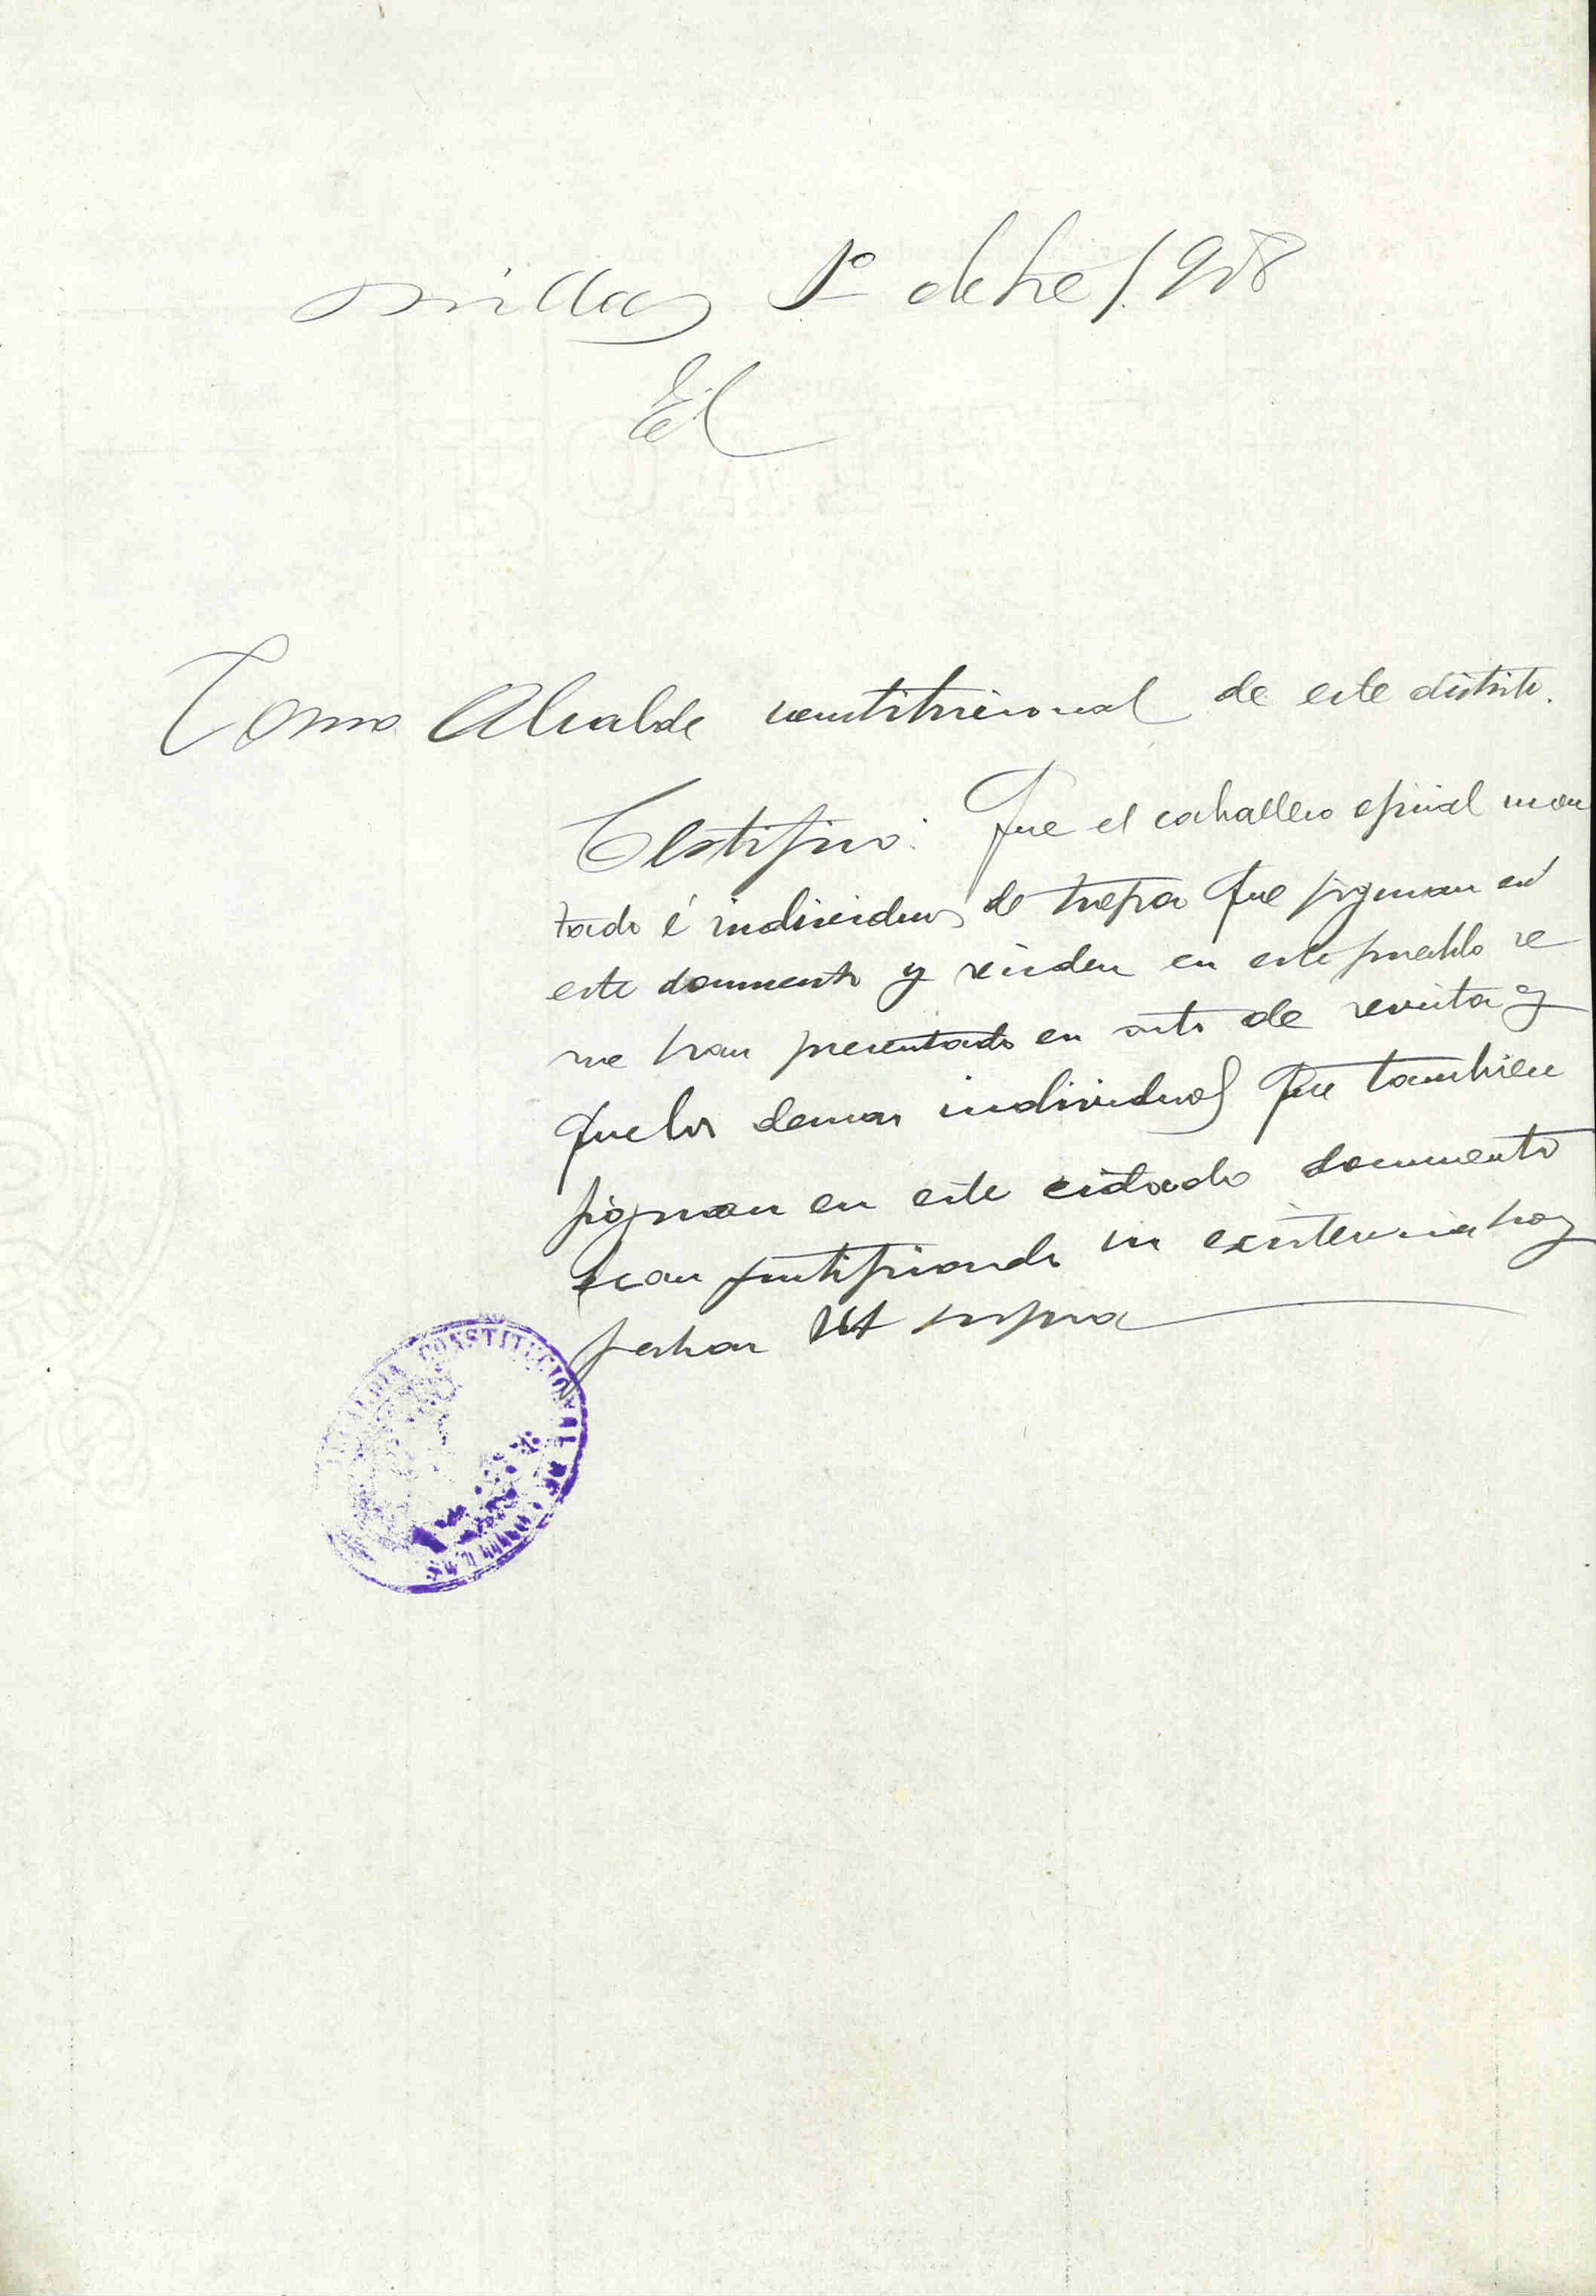 1º 1908
El
Como Alcalde constitucional de este distrito.
Certifico: Que el caballero oficial mon
tado é individuos de tropa que figuran en
este documento y residen en este pueblo se
me han presentado en acto de revista y
que los demas individuos que tambien
figuran en este citado documento
han justificado su existencia hoy
fecha Ut supra
ALCALDIA CONSTITUCIONAL DE